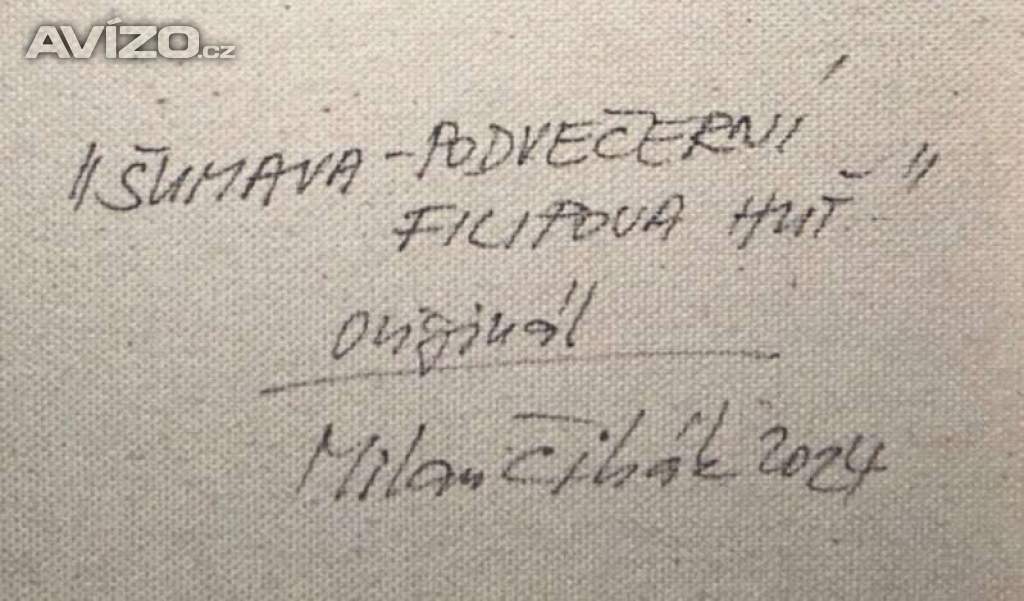 AVÍZO.cz
"ŠUMAVA – PODVEČERNÍ
FILIPOVA HUŤ"
originál
Milan Čihák 2024